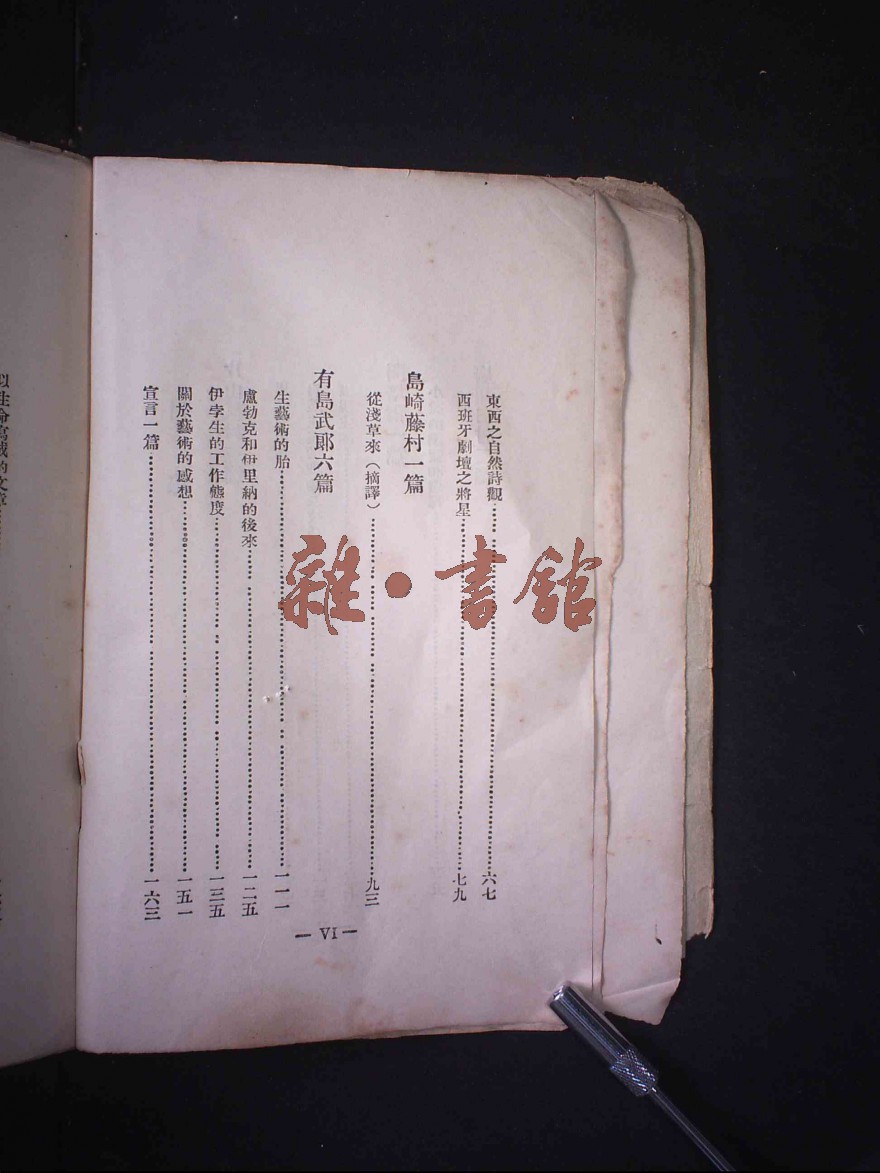 東西之自然詩觀……六七
西班牙劇壇之將星……七九
島崎藤村一篇
從淺草來（摘譯）……九三
有島武郞六篇
生藝術的胎……一一一
盧勃克和伊里納的後來……一二五
伊孛生的工作態度……一三五
關於藝術的感想……一五一
宣言一篇……一六三
— VI —
以生命寫成的文章
雜·書館